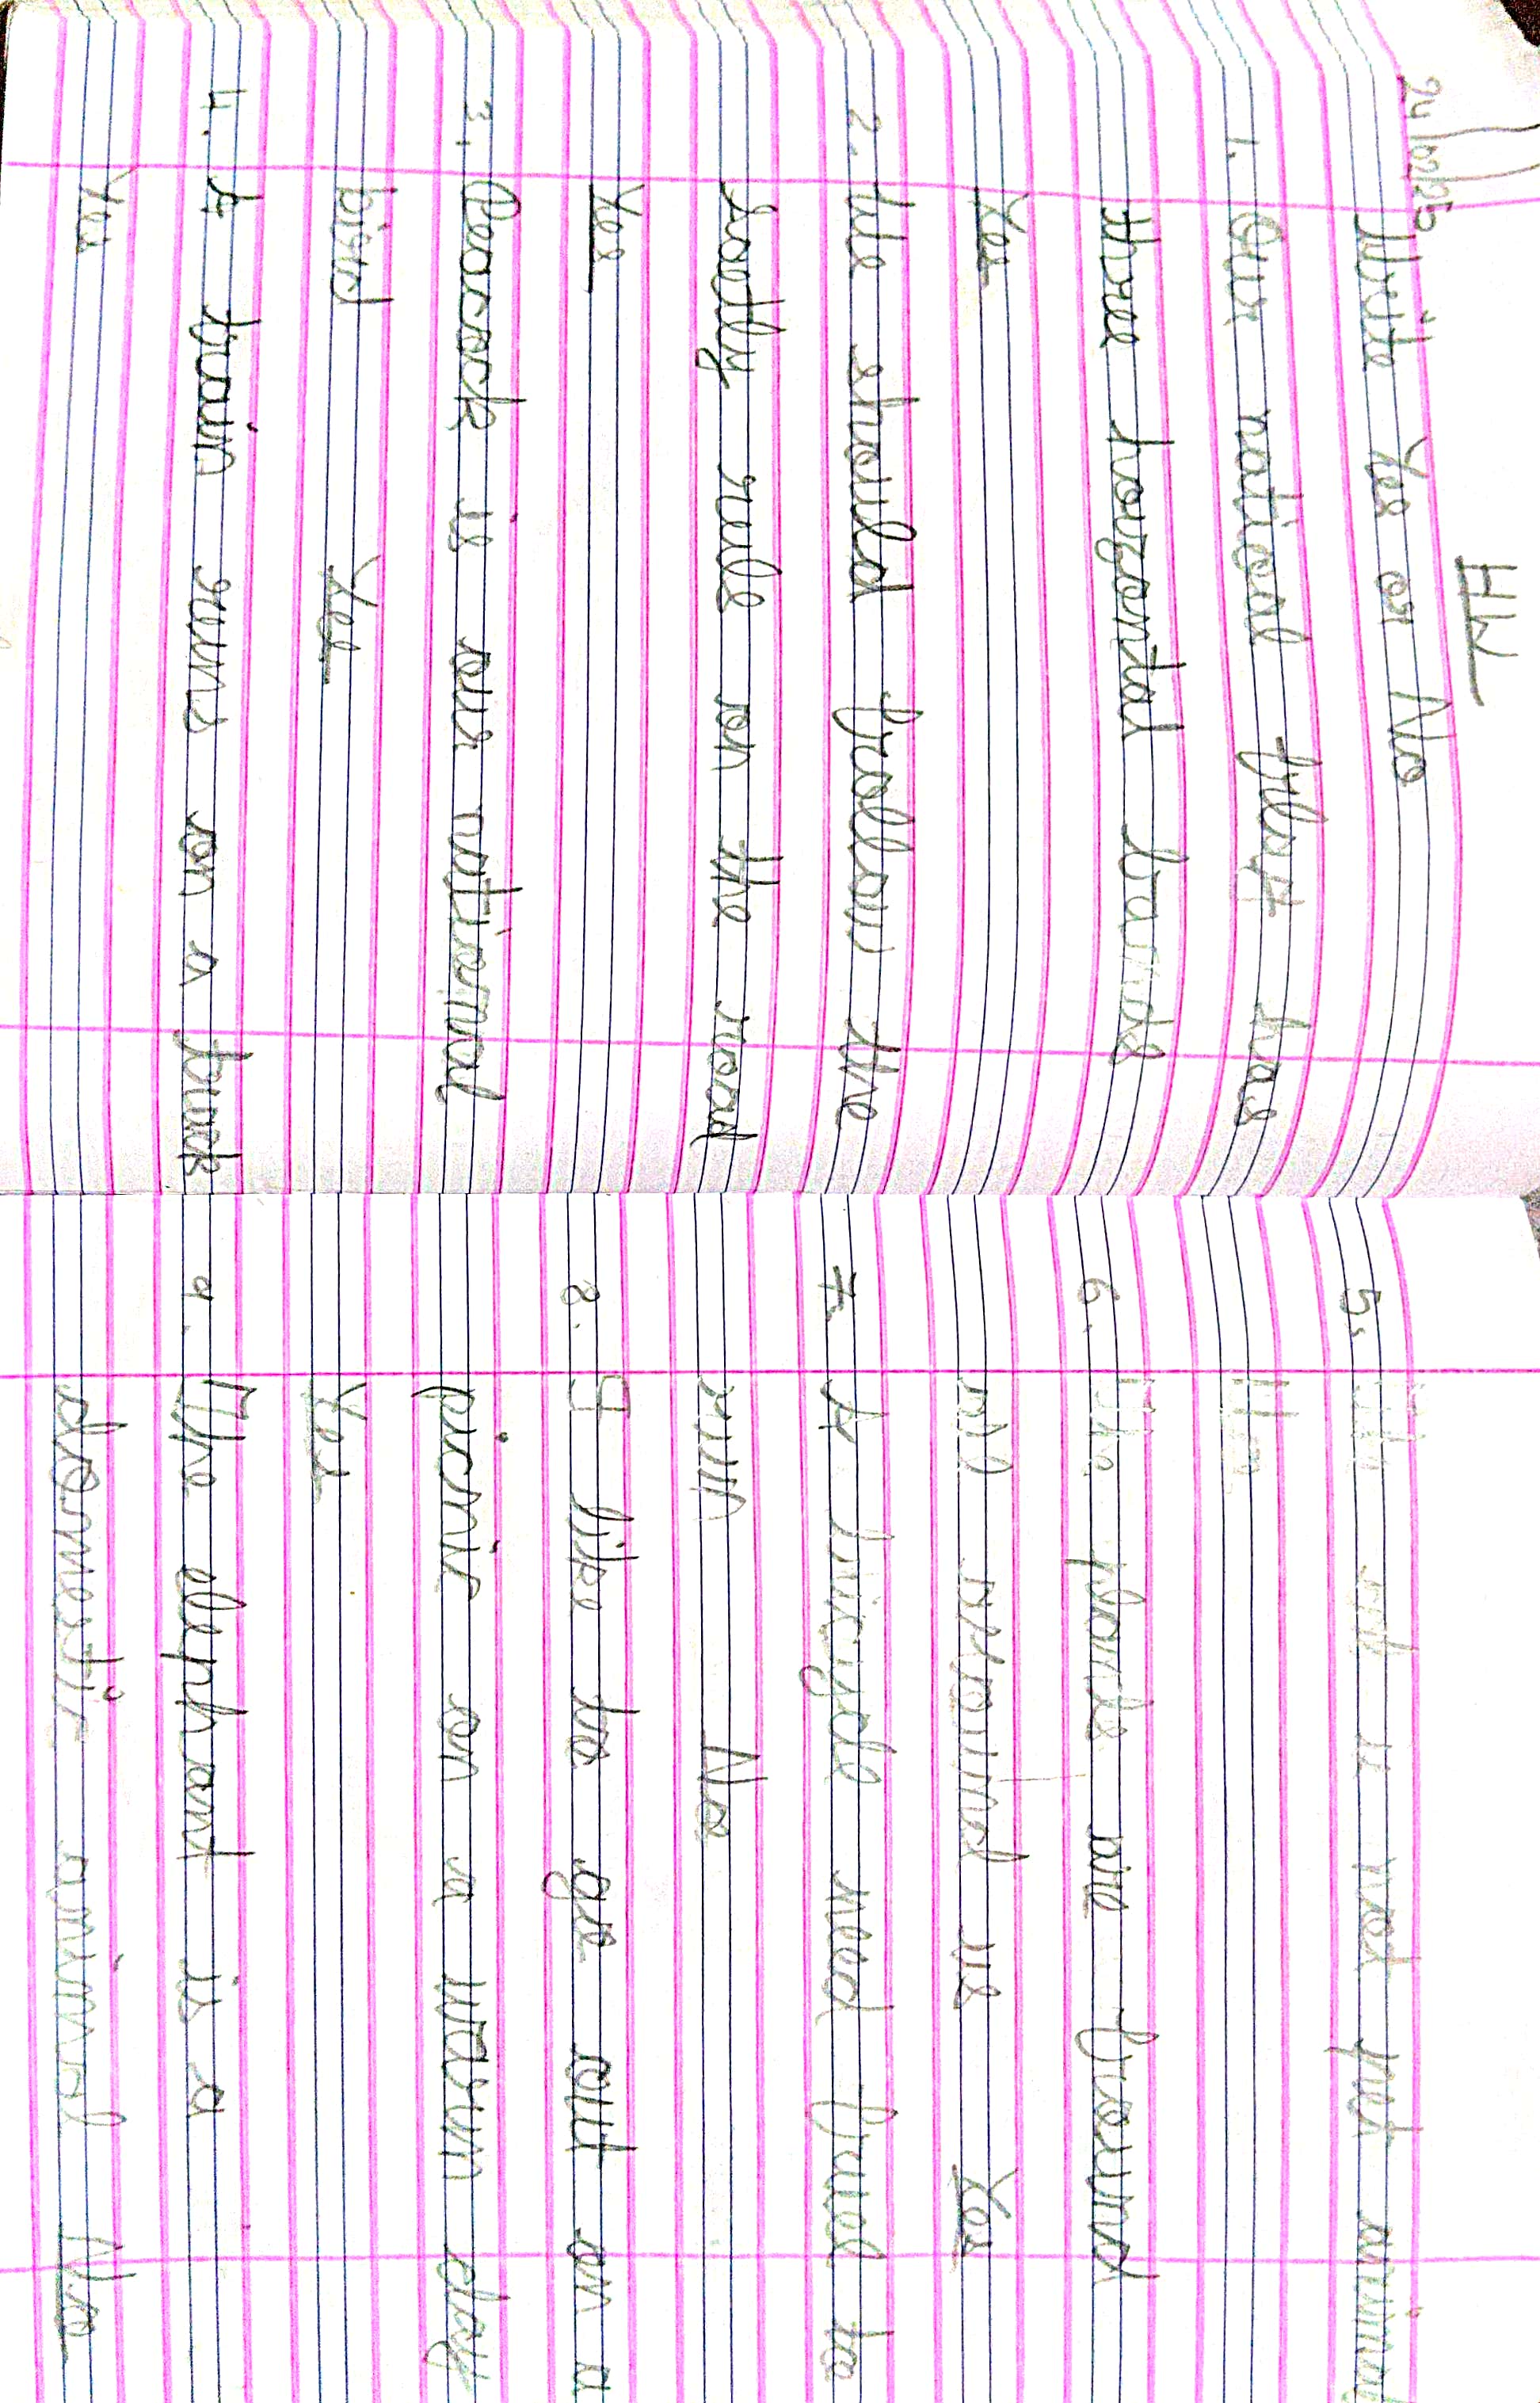 HW
24/02/25
Write Yes or No
1. Our national flag has
three horzontal bands
Yes
2. We should follow the
Saftly rule on the road
Yes
3. Peacock is our national
bird Yes
4. A train runs on a track
Yes
5. is not pet animal
Yes
6. The plants are found
all around us Yes
7. A bicycle need fuel to
run No
8. I like to go out on a
picnic on a warm day
Yes
9. The elephant is a
domestic animal No